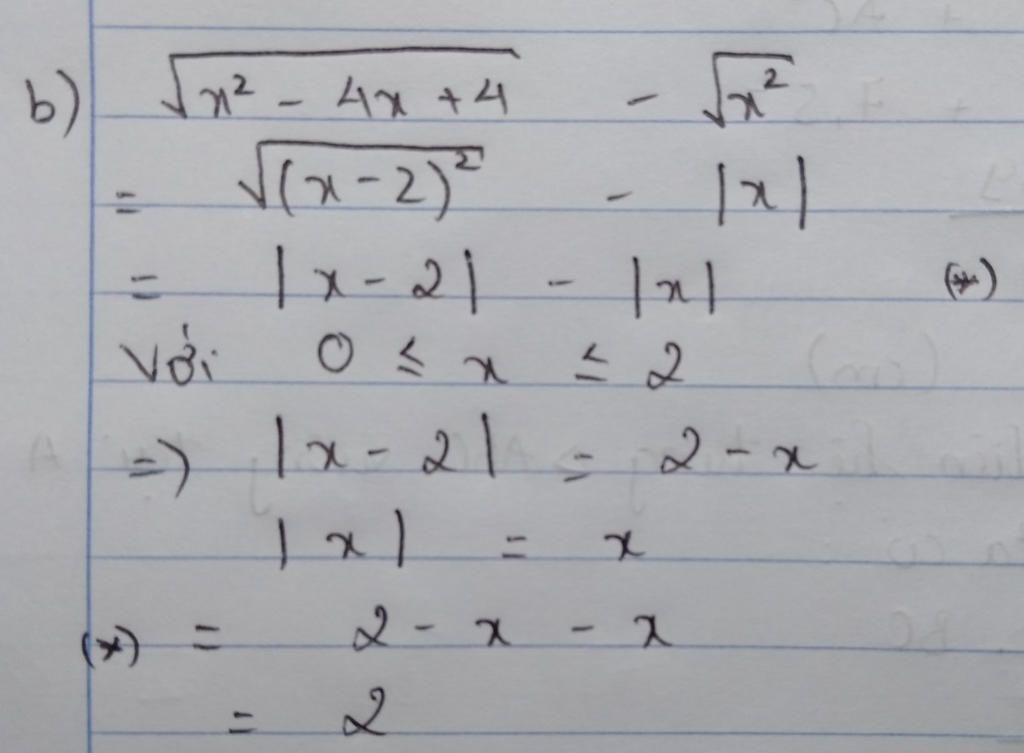 b) √(x² - 4x + 4) - √(x²)
= √((x - 2)²) - |x|
= |x - 2| - |x| (*)
Với 0 ≤ x ≤ 2
=) |x - 2| = 2 - x
|x| = x
(*) = 2 - x - x
= 2